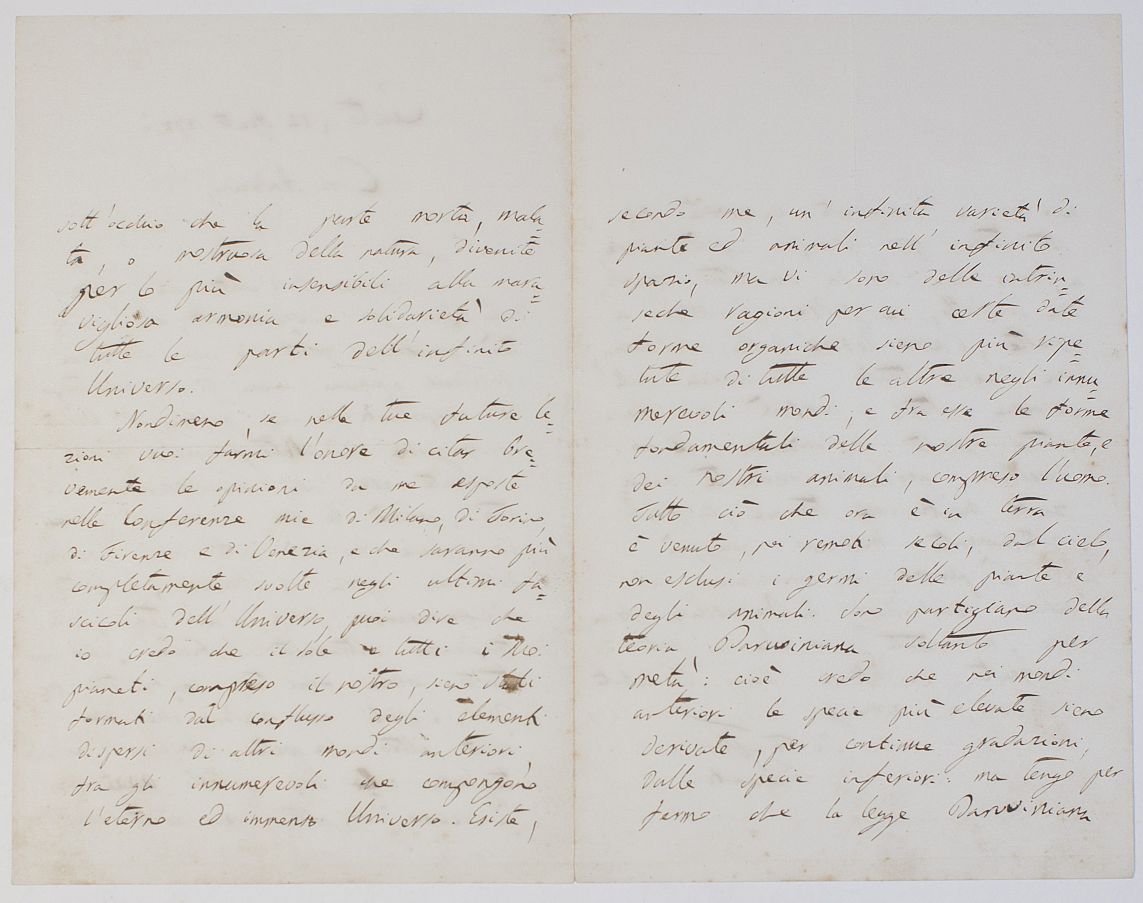 sott'occhio che la parte morta, mala=
ta, o mostruosa della natura, divenite
per lo più insensibili alla mara=
vigliosa armonia e solidarietà di
tutte le parti dell'infinito
Universo.
Nondimeno, se nelle tue future le=
zioni vuoi farmi l'onore di citar bre=
vemente le opinioni da me esposte
nelle Conferenze mie di Milano, di Torino,
di Firenze e di Venezia, e che saranno più
completamente svolte negli ultimi fa=
scicoli dell'Universo, puoi dire che
io credo che il sole e tutti i suoi
pianeti, compreso il nostro, sieno stati
formati dal conflusso degli elementi
dispersi di altri mondi anteriori,
fra gli innumerevoli che compongono
l'eterno ed immenso Universo. Esiste,
secondo me, un' infinita varietà di
piante ed animali nell' infinito
spazio, ma vi sono delle intrin=
seche ragioni per cui certe date
forme organiche sieno più ripe=
tute di tutte le altre negli innu
merevoli mondi, e fra esse le forme
fondamentali delle nostre piante, e
dei nostri animali, compreso l'uomo.
Tutto ciò che ora è in terra
è venuto, nei remoti secoli, dal cielo,
non esclusi i germi delle piante e
degli animali. Sono partigiano della
teoria Darwiniana soltanto per
metà: cioè credo che nei mondi
anteriori le specie più elevate sieno
derivate, per continue gradazioni,
dalle specie inferiori: ma tengo per
fermo che la legge Darwiniana